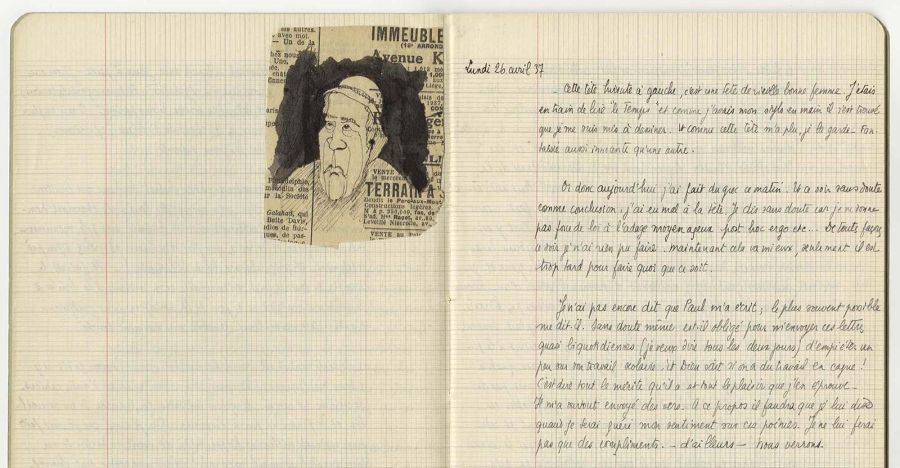 ms autres.
avec moi.
— Un de la
IMMEUBLE
(16e ARROND
Avenue K
VENTE
le mercre
TERRAIN A
Constructions légères.
VENTE au
Philadelphie,
de la Société
Galahad, qui
Bette Davis,
Lundi 26 avril 37
Cette tête hirsute à gauche, c'est une tête de vieille bonne femme. J'étais
en train de lire "le Temps" et comme j'avais mon stylo en main il s'est trouvé
que je me suis mis à dessiner. Et comme cette tête m'a plu, je la garde. Fan-
taisie aussi innocente qu'une autre.
Or donc aujourd'hui j'ai fait du grec ce matin. Et ce soir sans doute
comme conclusion, j'ai eu mal à la tête. Je dis sans doute car je ne donne
pas foule de loi à l'adage moyen ageux post hoc ergo etc... De toute façon
ce soir je n'ai rien pu faire. Maintenant cela va mieux, seulement il est
trop tard pour faire quoi que ce soit.
Je n'ai pas encore dit que Paul m'a écrit; le plus souvent possible
me dit-il. Sans doute même est-il obligé pour m'envoyer ces lettres
quasi biquotidiennes (je veux dire tous les deux jours) d'empiéter un
peu sur son travail scolaire. Et Dieu sait si on a du travail en cagne!
C'est dire tout le mérite qu'il a et tout le plaisir que j'en éprouve —
Il m'a surtout envoyé des vers. A ce propos il faudra que je lui dise
quand je serai guéri mon sentiment sur ces poèmes. Je ne lui ferai
pas que des compliments. — d'ailleurs — nous verrons.